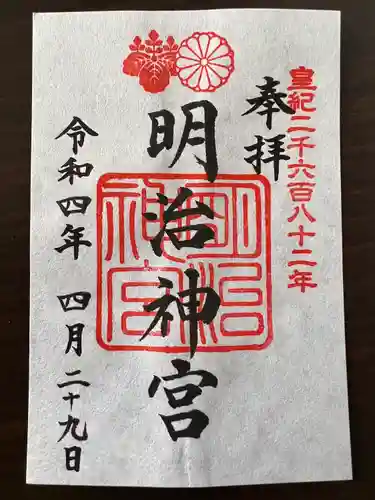 皇紀二千六百八十二年
奉拝
明治神宮
明治神宮
令和四年 四月二十九日